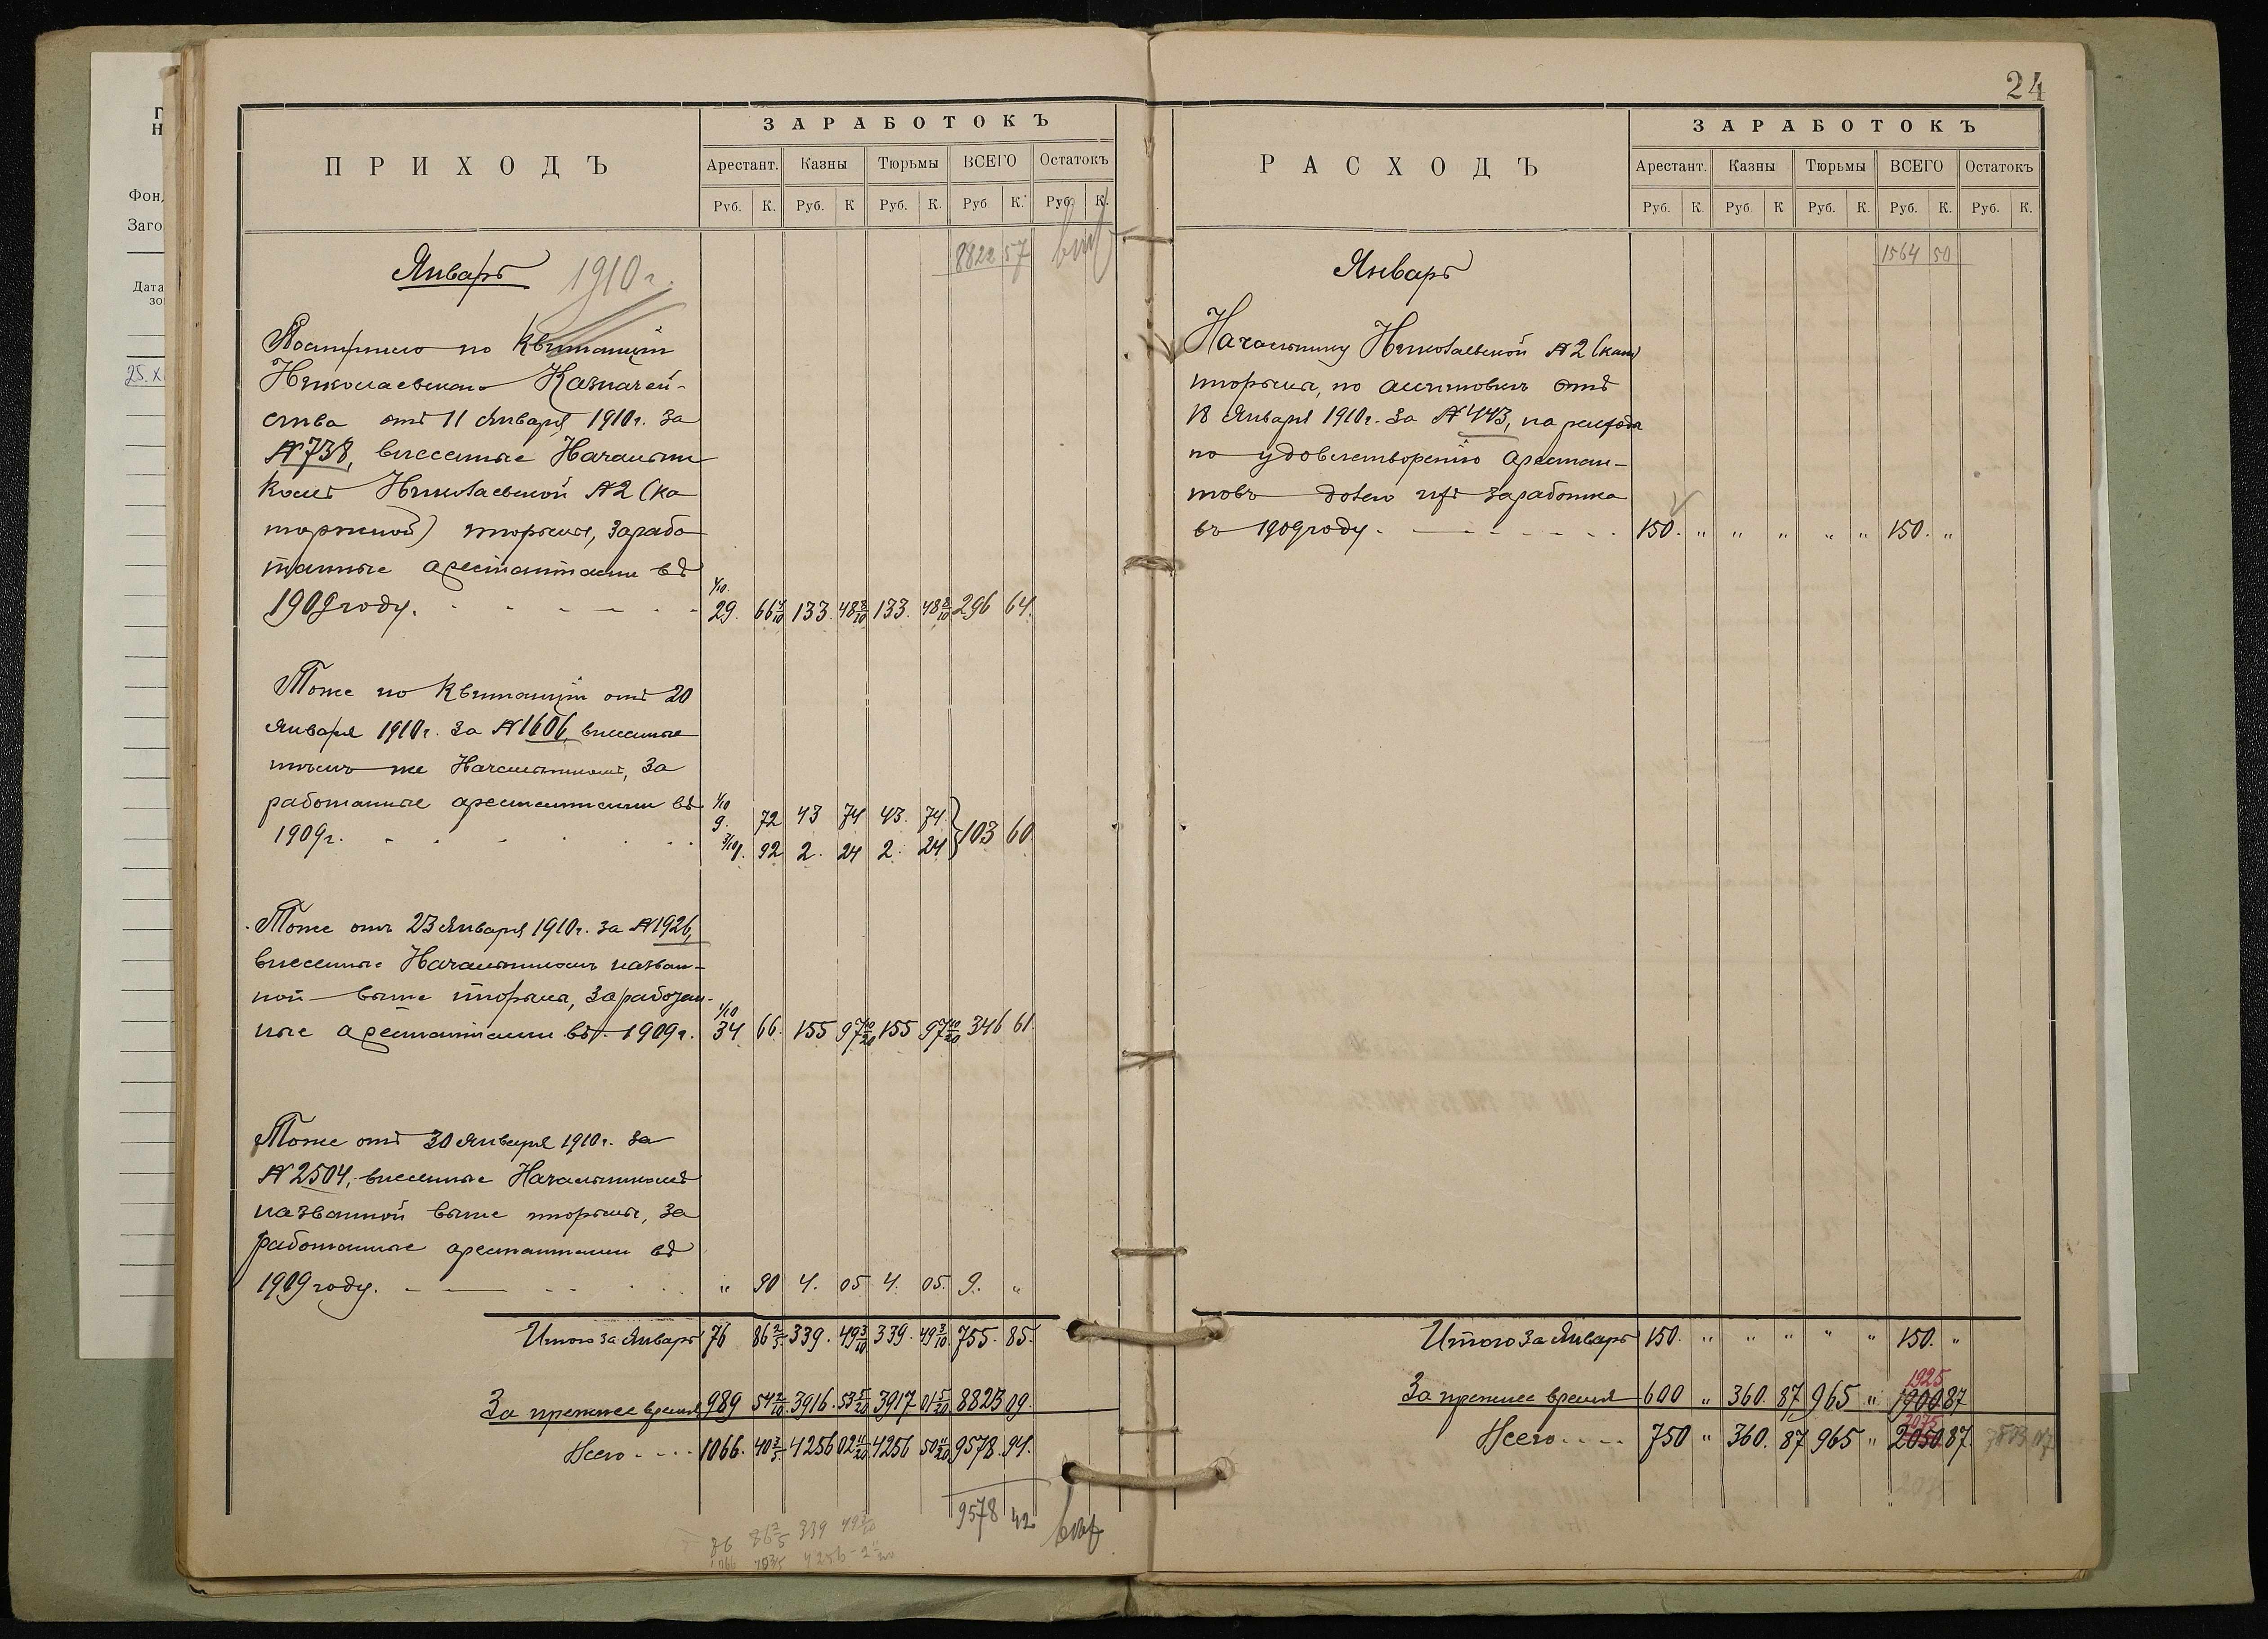 24
П
Н
Фон
Заго
Дата
зо
25. XI
ПРИХОДЪ
ЗАРАБОТОКЪ
Арестант. Казны Тюрьмы ВСЕГО Остатокъ
Руб. К. Руб. К Руб. К. Руб К. Руб. К.
8822 57
Январь 1910 г.
Поступило по Квитанціи
Николаевскаго Казначей-
ства отъ 11 Января 1910 г. за
№ 738, внесенные Начальни
комъ Николаевской № 2 (ка
торжной) тюрьмы, зарабо
танные арестантами въ
1/10
1909 году. 29. 66 4/10 133. 48 8/10 133. 48 8/10 296 64.
Тоже по Квитанціи отъ 20
Января 1910 г. за № 1606, внесенные
тѣмъ же Начальникомъ, за
работанные арестантами въ
1909 г.
1/10 9. 72 43 74 43. 74.
92 2. 24 2. 24 } 103 60
Тоже отъ 23 Января 1910 г. за № 1926,
внесенные Начальникомъ назван-
ной выше тюрьмы, заработан-
1/10
ные арестантами въ 1909 г. 34 66. 155 97 10/20 155 97 10/20 346 61.
Тоже отъ 30 Января 1910 г. за
№ 2504, внесенные Начальникомъ
названной выше тюрьмы, за
работанные арестантами въ
1909 году. " 90 4. 05 4. 05. 9. "
Итого за Январь 76 86 2/5 339. 49 3/10 339. 49 3/10 755. 85.
За прежнее время 989 54 2/10 3916. 53 5/20 3917 01 5/20 8823 09.
Всего 1066. 40 3/5 4256 02 11/20 4256 50 11/20 9578. 94.
9578 42
86 2/5 339 49 3/10
1066 40 3/5 4256
РАСХОДЪ
ЗАРАБОТОКЪ
Арестант. Казны Тюрьмы ВСЕГО Остатокъ
Руб. К. Руб К Руб. К. Руб. К. Руб. К.
1564 50
Январь
Начальнику Николаевской № 2 (кат)
тюрьмы, по ассигновкѣ отъ
18 Января 1910 г. за № 443, на расходы
по удовлетворенію арестан-
товъ долею изъ заработка
въ 1909 году. 150. " " " " " 150. "
Итого за Январь 150. " " " " " 150. "
1925
За прежнее время 600 " 360. 87 965 " 1900 87
2075
Всего 750 " 360. 87 965 " 2050 87.
2075